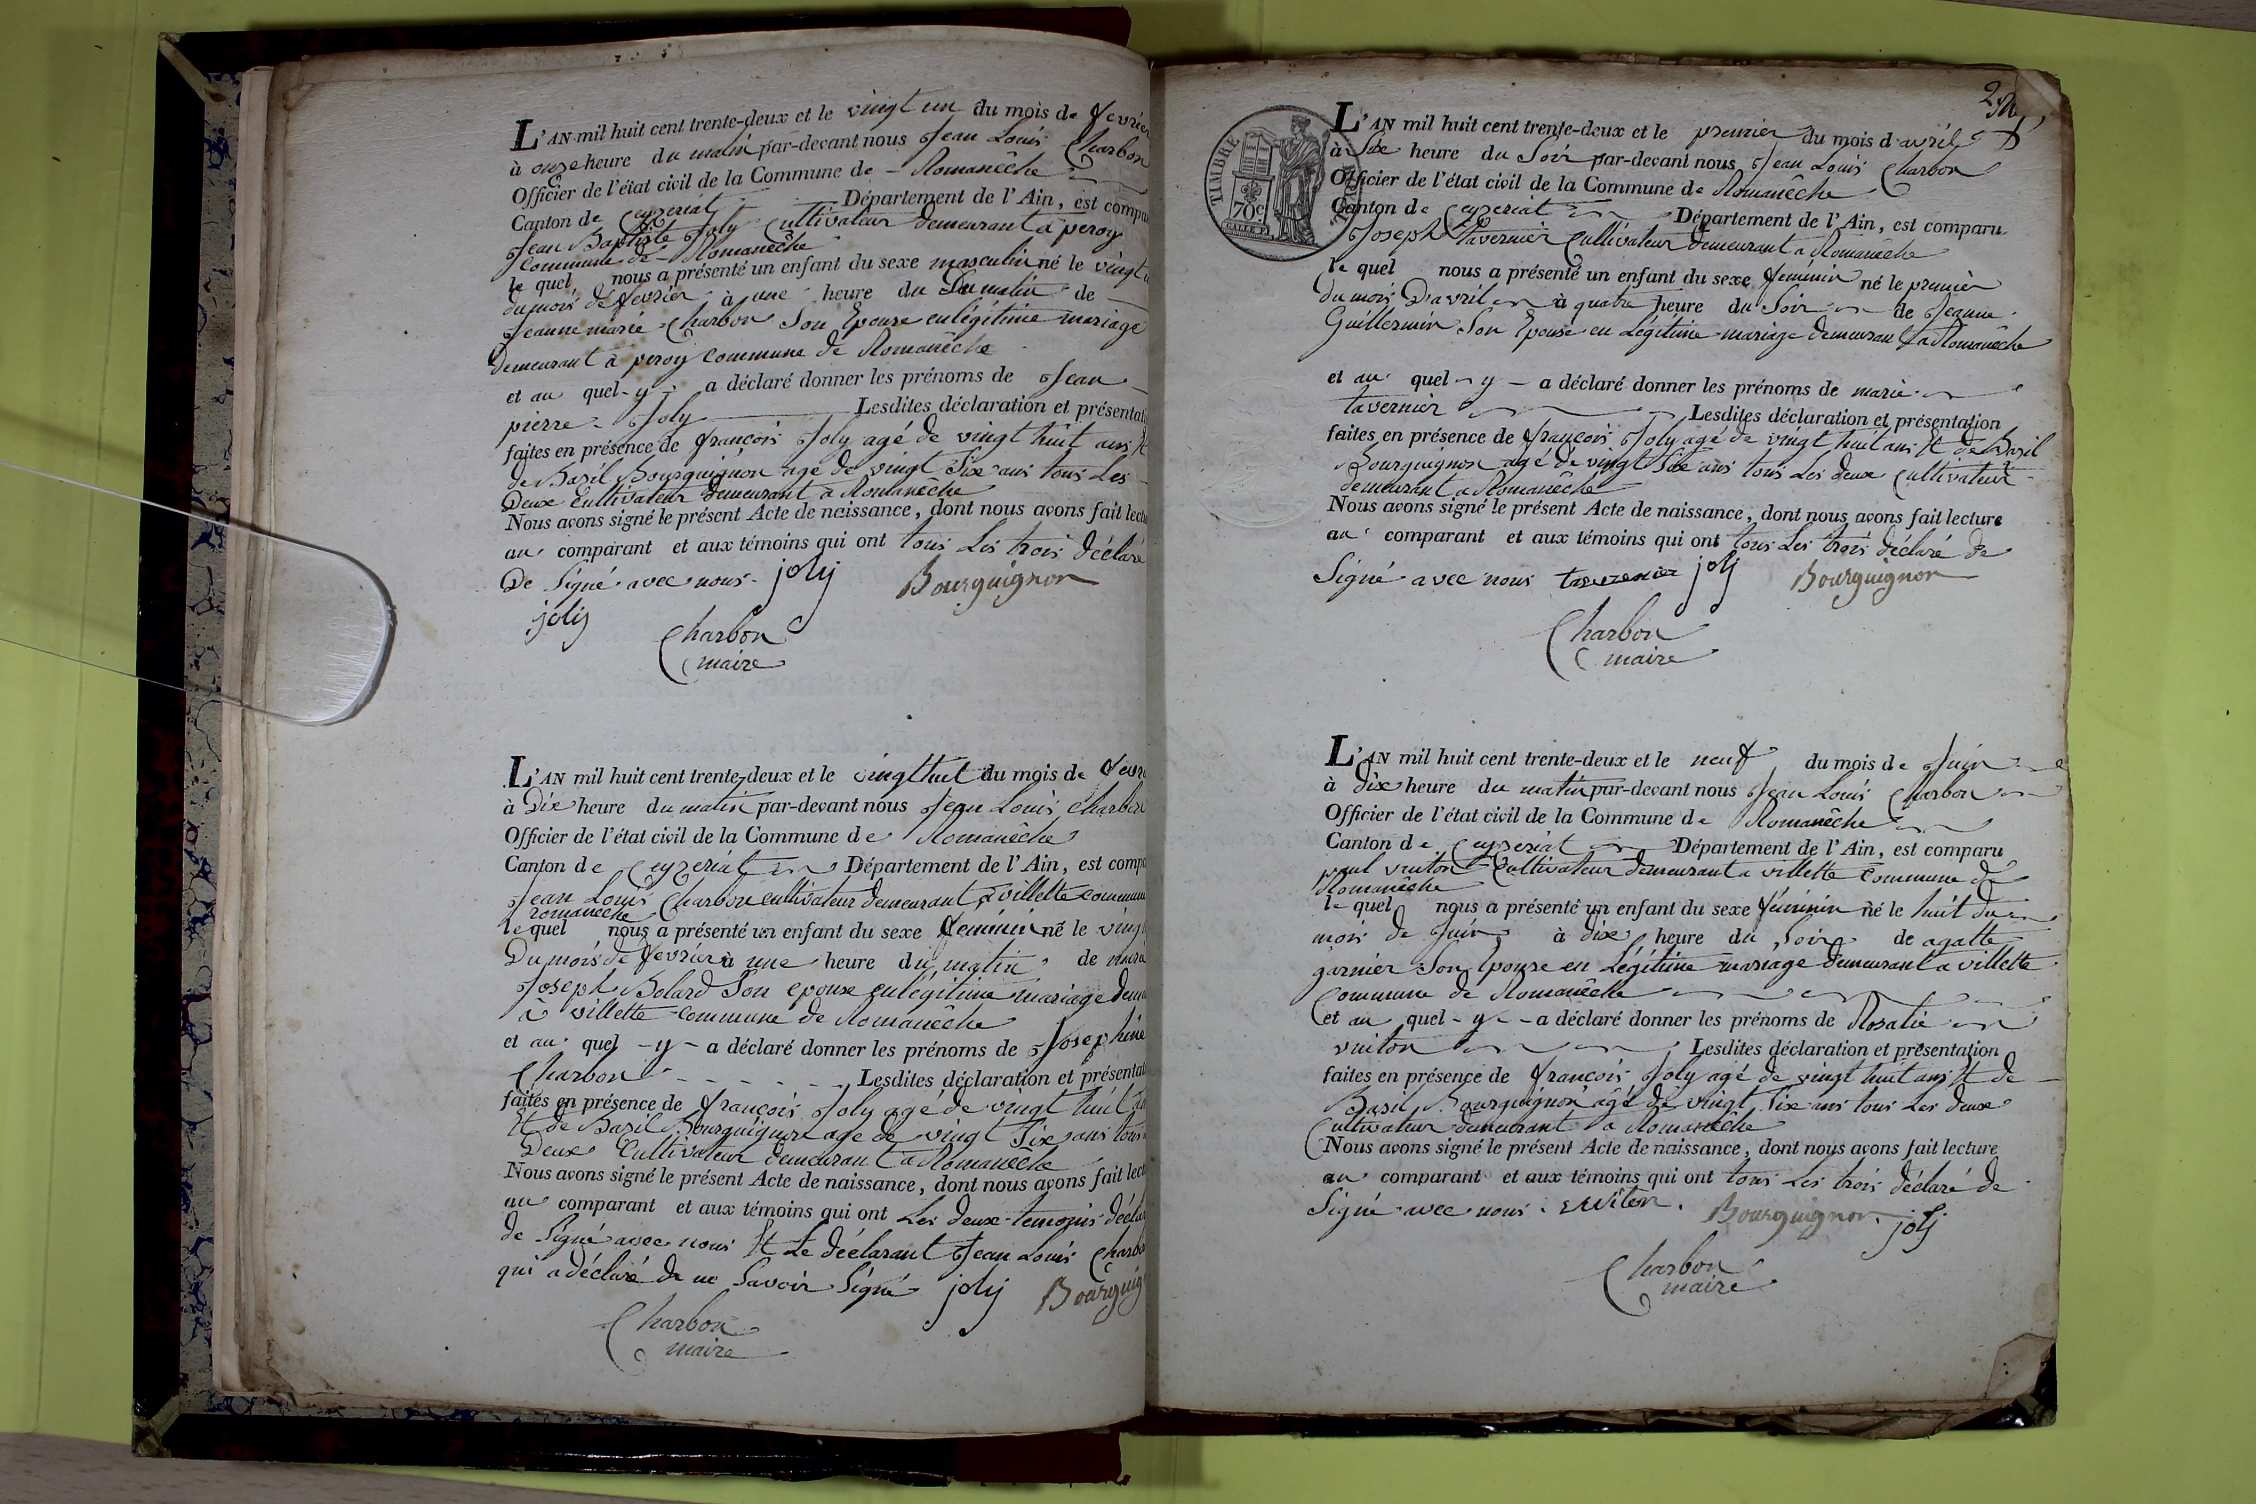 L'AN mil huit cent trente-deux et le vingt un du mois de fevrier
à onze heure du matin par-devant nous Jean Louis Charbon
Officier de l'état civil de la Commune de Romanêche
Canton de Ceyzeriat Département de l'Ain, est compa
Jean Baptiste Joly Cultivateur demeurant à peroy
Commune de Romanêche
le quel nous a présenté un enfant du sexe masculin né le vingt
du mois de fevrier à une heure du matin de
Jeanne marie Charbon Son Epouse en légitime mariage
demeurant à peroy commune de Romanêche
et au quel - y - a déclaré donner les prénoms de Jean
pierre Joly Lesdites déclaration et présentati
faites en présence de françois Joly agé de vingt huit ans Et
de Basil Bourguignon agé de vingt Six ans tous Les
Deux Cultivateur demeurant à Romanêche
Nous avons signé le présent Acte de naissance, dont nous avons fait lectu
au comparant et aux témoins qui ont tous Les trois déclaré
De Signé avec nous joly Bourguignon
joly
Charbon
maire
L'AN mil huit cent trente-deux et le vingt huit du mois de fevr
à Dix heure du matin par-devant nous Jean Louis Charbon
Officier de l'état civil de la Commune de Romanêche
Canton de Ceyzeriat Département de l'Ain, est compa
Jean Louis Charbon cultivateur demeurant a villette commune
romanêche
le quel nous a présenté un enfant du sexe feminin né le vingt
Du mois de fevrier à une heure du matin de marie
Joseph Bolard Son epouse en légitime mariage deme
à villette commune de Romanêche
et au quel - y - a déclaré donner les prénoms de Josephine
Charbon Lesdites déclaration et présentati
faites en présence de françois Joly agé de vingt huit
Et de Basil Bourguignon age de vingt Six ans tous
Deux Cultivateur demeurant à Romanêche
Nous avons signé le présent Acte de naissance, dont nous avons fait lect
au comparant et aux témoins qui ont Les deux temoins déclar
de Signé avec nous Et Le déclarant Jean Louis Charbo
qui a déclaré de ne Savoir Signé joly Bourguig
Charbon
maire
TIMBRE ROYAL
70c
L'AN mil huit cent trente-deux et le premier du mois d'avril
à Six heure du Soir par-devant nous Jean Louis Charbon
Officier de l'état civil de la Commune de Romanêche
Canton de Ceyzeriat Département de l'Ain, est comparu
Joseph tavernier Cultivateur demeurant a Romanêche
le quel nous a présenté un enfant du sexe feminin né le premier
du mois D'avril à quatre heure du Soir de Jeanne
Guillermin Son Epouse en Légitime mariage demeurant a Romanêche
et au quel - y - a déclaré donner les prénoms de marie
tavernier Lesdites déclaration et présentation
faites en présence de françois Joly agé de vingt huit ans Et de Basil
Bourguignon agé de vingt Six ans tous Les deux Cultivateur
demeurant a Romanêche
Nous avons signé le présent Acte de naissance, dont nous avons fait lecture
au comparant et aux témoins qui ont tous Les trois déclaré de
Signé avec nous joly Bourguignon
Charbon
maire
L'AN mil huit cent trente-deux et le neuf du mois de Juin
à dix heure du matin par-devant nous Jean Louis Charbon
Officier de l'état civil de la Commune de Romanêche
Canton de Ceyzeriat Département de l'Ain, est comparu
paul vuiton Cultivateur demeurant a villette Commune de
Romanêche
le quel nous a présenté un enfant du sexe féminin né le huit du
mois de Juin à dix heure du Soir de agatte
garnier Son Epouse en Légitime mariage demeurant a villette
Commune de Romanêche
et au quel - y - a déclaré donner les prénoms de Rosalie
vuiton Lesdites déclaration et présentation
faites en présence de françois Joly agé de vingt huit ans Et de
Basil Bourguignon agé de vingt Six ans tous Les deux
Cultivateur demeurant à Romanêche
Nous avons signé le présent Acte de naissance, dont nous avons fait lecture
au comparant et aux témoins qui ont tous Les trois déclaré de
Signé avec nous. Bourguignon. joly
Charbon
maire